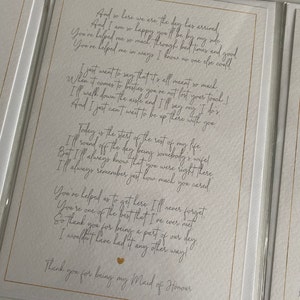 And so here we are the day has arrived
And I am so happy you'll be by my
You've helped me so much through bad times and good
You've helped me in ways I knew no one else could
I just want to say that it's all meant so much
When it comes to besties you've not lost your touch!
I'll walk down the aisle and I'll say my I do's
And I just can't wait to be up there with you
Today is the start of the rest of my life,
I'll the day being somebody's wife!
But I'll always know that you were right there
I'll always remember just how much you cared
You've helped us to get here I'll never forget
You're one of the best that I've ever met
So thank you for being a part of our day
I wouldn't have had it any other way!
Thank you for being my Maid of Honour